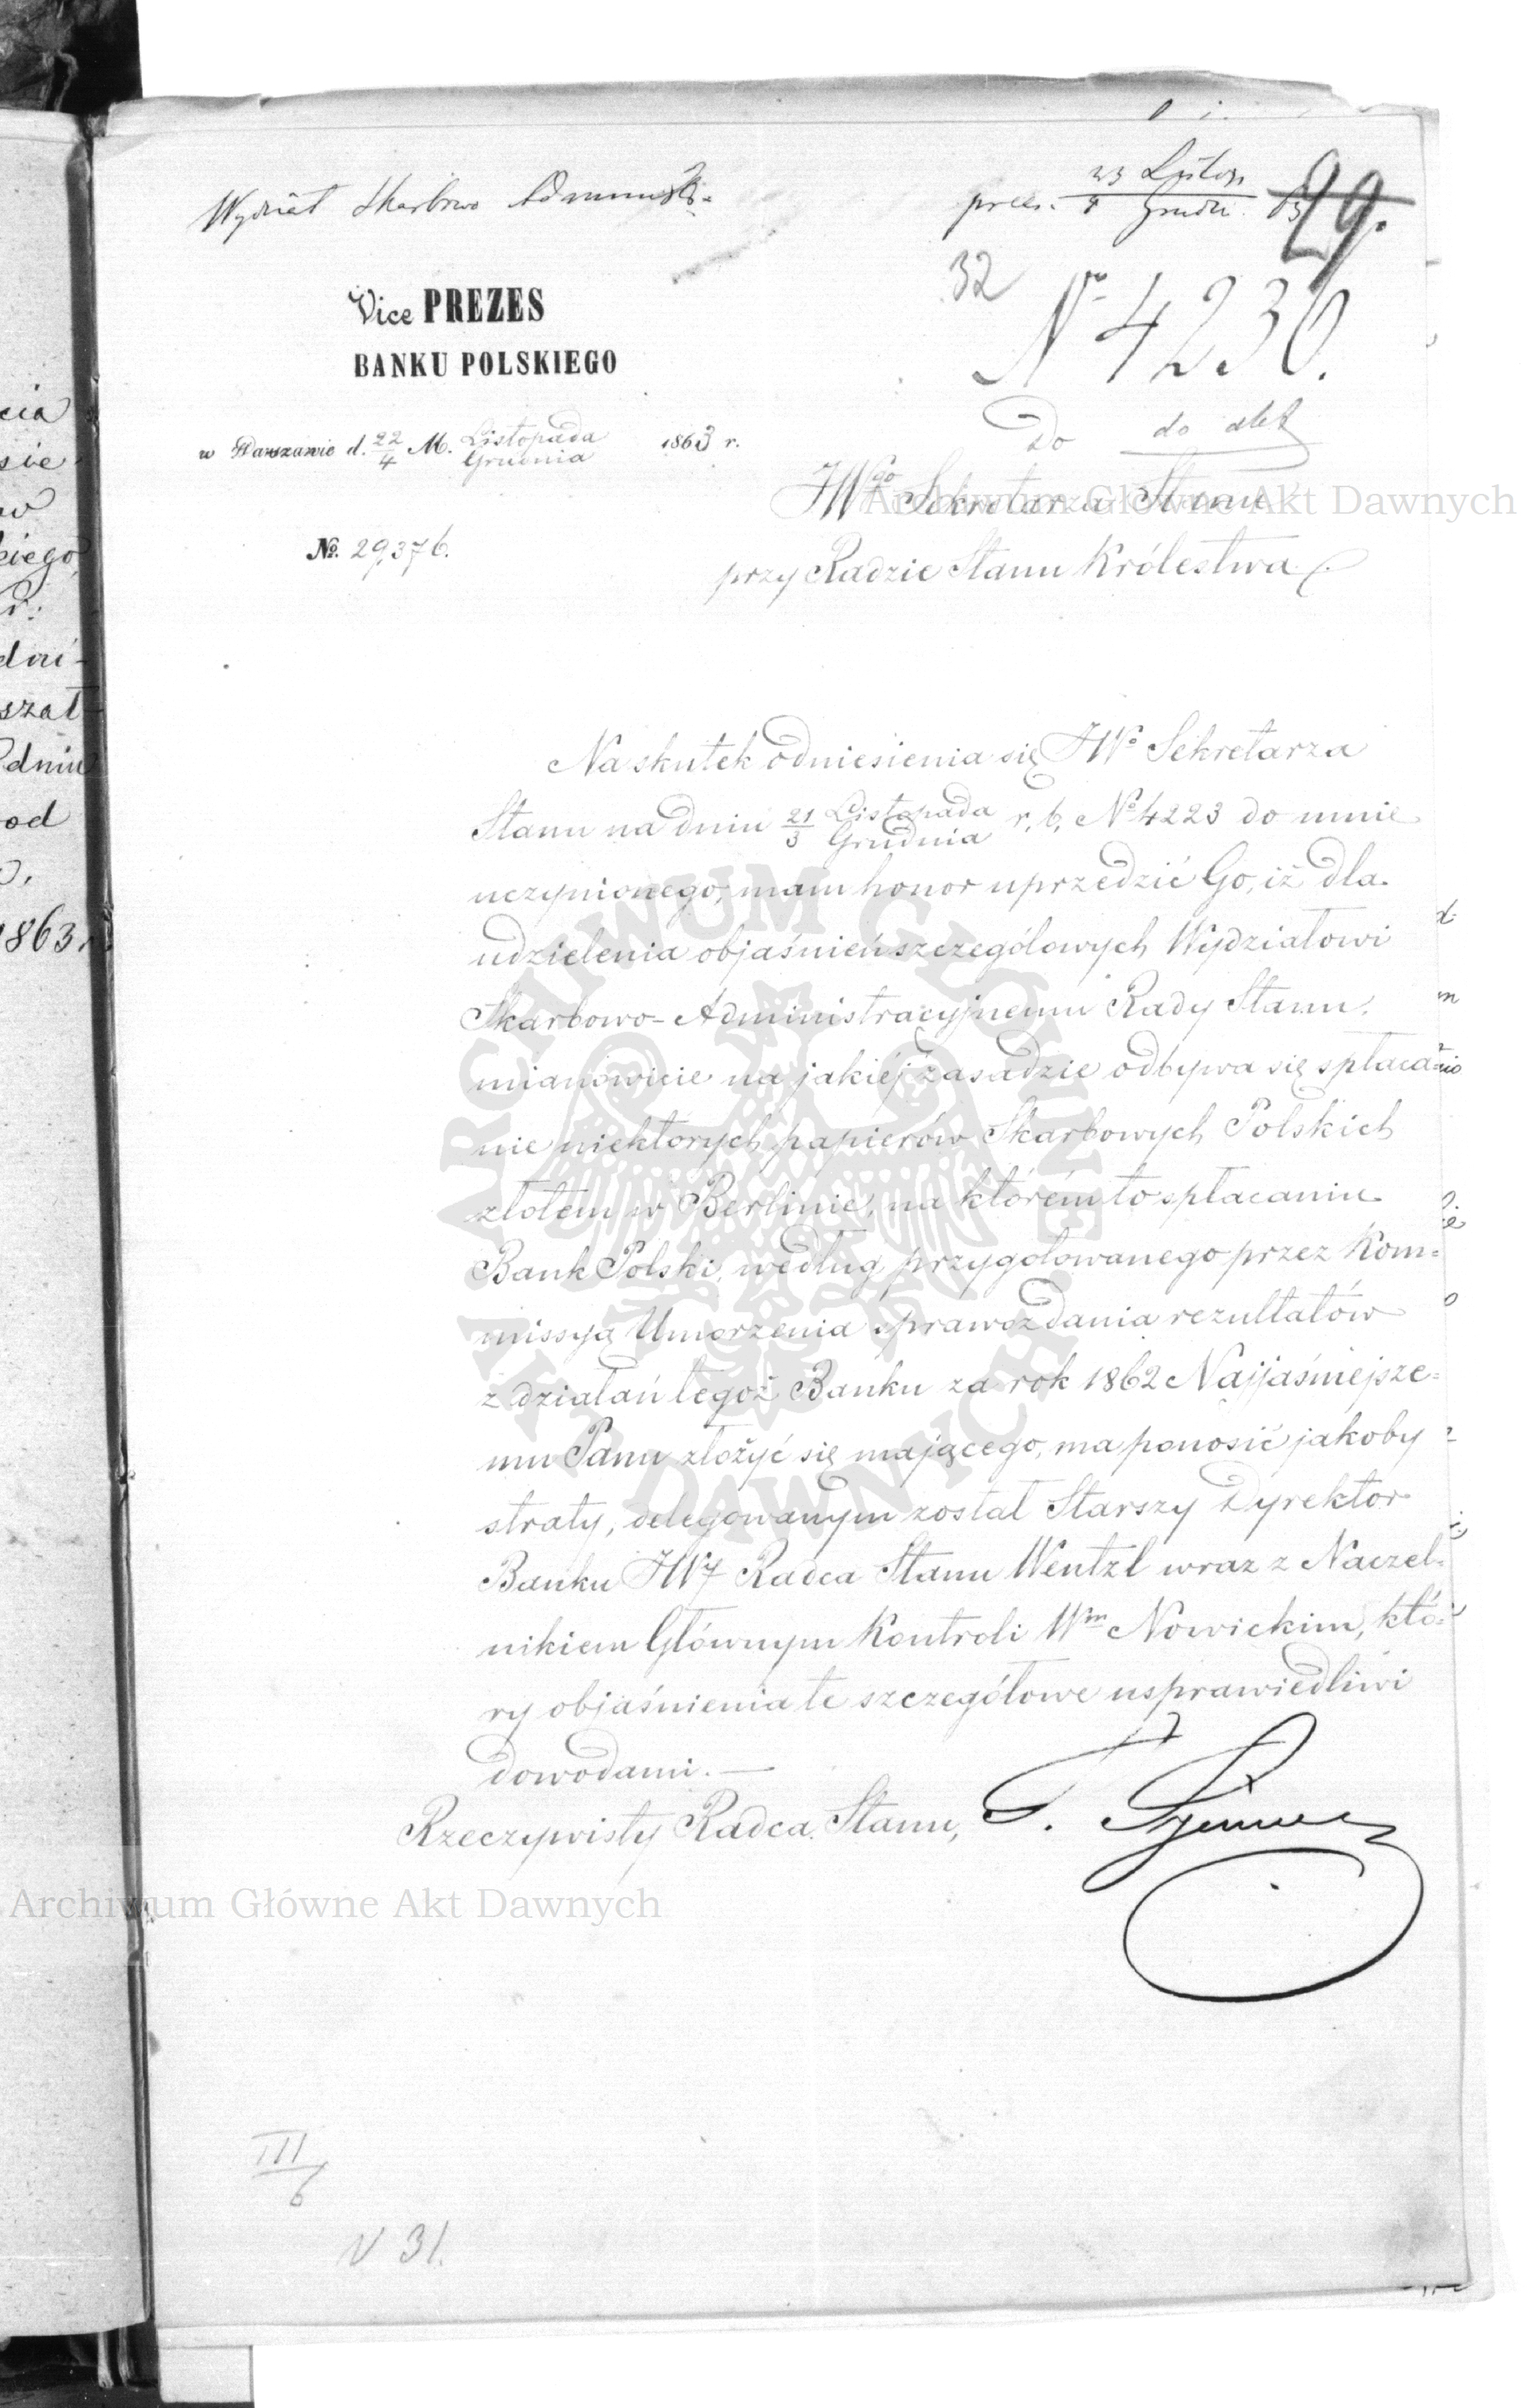 Wydział Skarbowo Administr.
29.
32
Nr 4236.
Vice PREZES
BANKU POLSKIEGO
w Warszawie d. 22/4 M. Listopada/Grudnia 1863 r.
№. 29,376.
Do
do akt
JWgo Sekretarza Stanu
przy Radzie Stanu Królestwa.
Na skutek odniesienia się JWo Sekretarza
Stanu na dniu 21/3 Listopada/Grudnia r. b. No 4223 do mnie
uczynionego, mam honor uprzedzić Go, iż dla
udzielenia objaśnień szczegółowych Wydziałowi
Skarbowo-Administracyjnemu Rady Stanu,
mianowicie na jakiéj zasadzie odbywa się spłaca=
nie niektorych papierów Skarbowych Polskich
złotem w Berlinie, na którém to spłacaniu
Bank Polski, według przygotowanego przez Kom=
missyą Umorzenia sprawozdania rezultatów
z działań tegoż Banku za rok 1862 Najjaśniejsze=
mu Panu złożyć się mającego, ma ponosić jakoby
straty, delegowanym został Starszy Dyrektor
Banku JWy Radca Stanu Wentzl wraz z Naczel=
nikiem Głównym Kontroli Wm Nowickim, któ=
ry objaśnienia te szczegółowe usprawiedliwi
dowodami. —
Rzeczywisty Radca Stanu,
III/6
N 31.
cia
sie
w
kiego
dni-
szał-
dniu
od
1863 r.
Archiwum Główne Akt Dawnych
ARCHIWUM GŁÓWNE AKT DAWNYCH
Archiwum Główne Akt Dawnych